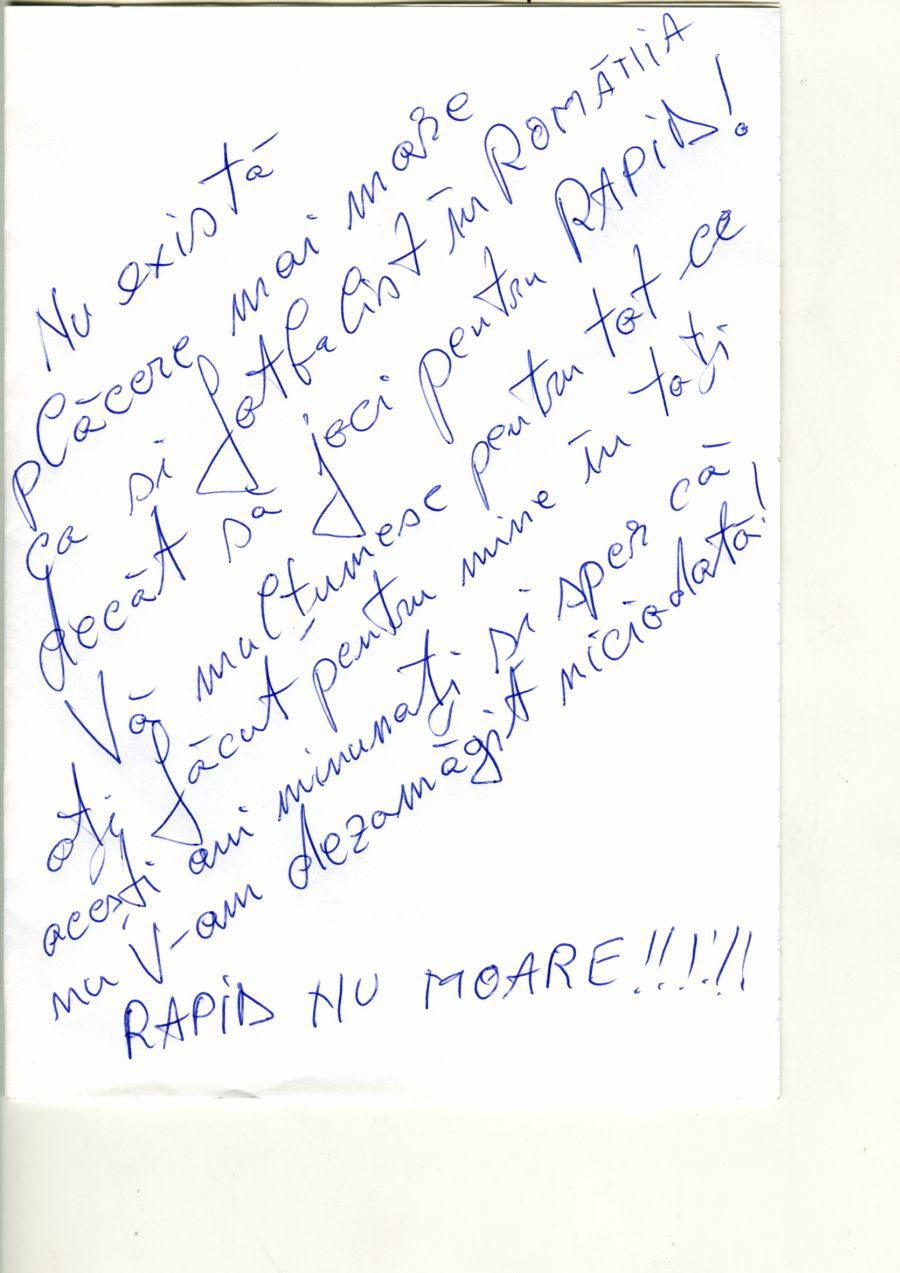 Nu există
plăcere mai mare
ca si fotbalist în ROMÂNIA
decât să joci pentru RAPID!
Vă mulțumesc pentru tot ce
ați făcut pentru mine în toți
acești ani minunați si sper că
nu V-am dezamăgit niciodată!
RAPID NU MOARE!!!!!!